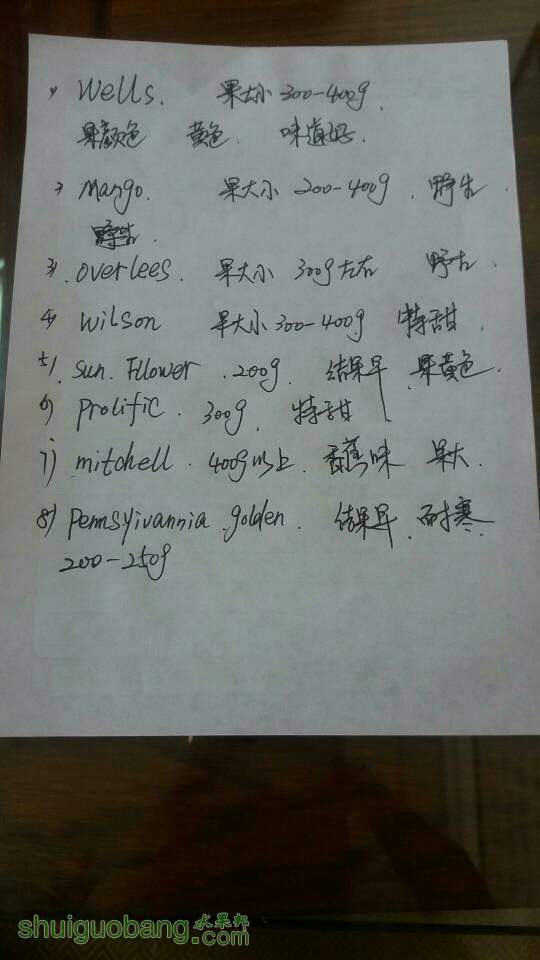 1) Wells. 果大小 300-400g.
果颜色 黄色. 味道好.
2) Mango. 果大小 200-400g. 野生.
野生.
3) .overlees. 果大小 300g左右 野生
4) wilson 果大小 300-400g 特甜.
5). sun. Fllower .200g. 结果早 果黄色.
6) prolific. 300g. 特甜
7) mitchell. 400g以上. 香蕉味 果大.
8) pennsyivannia .golden. 结果早. 耐寒.
200-250g
水果邦
shuiguobang.com